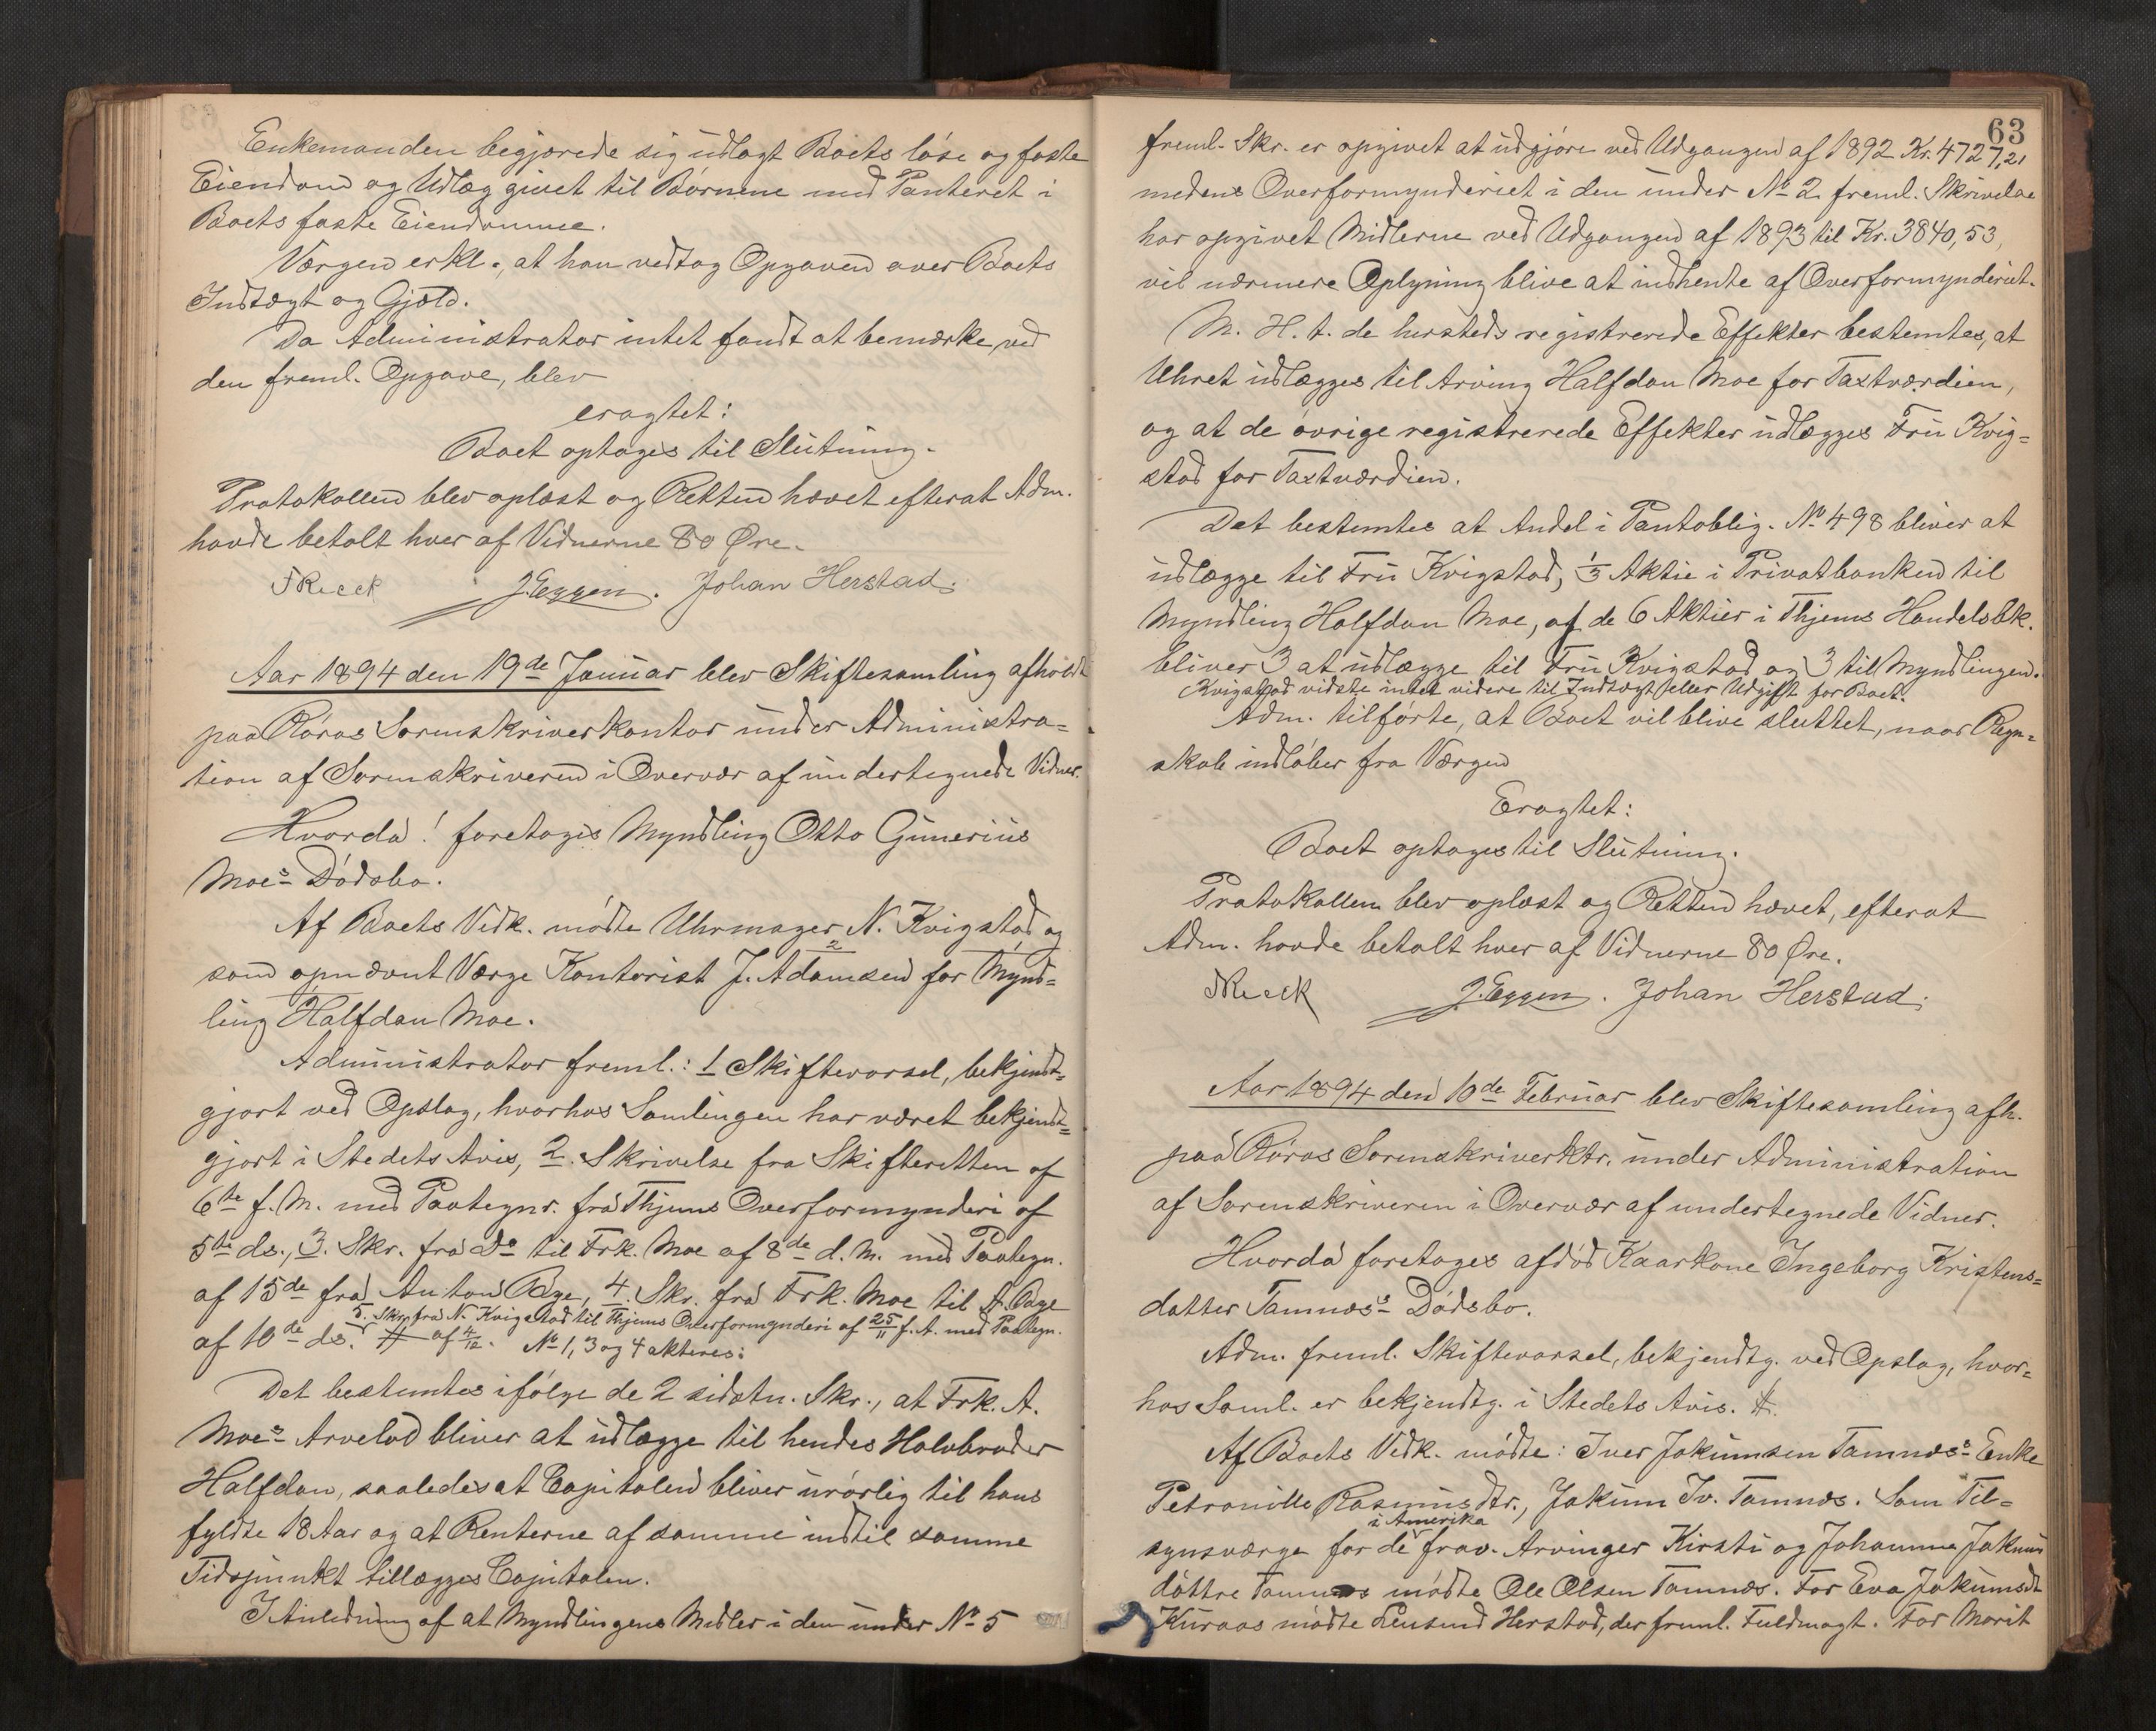 Enkemanden begjærede sig udlagt Boets løse og faste
Eiendom og Udlæg givet til Børnene med Panteret i
Boets faste Eiendomme.
Værgen erkl., at han vedtog Opgaven over Boets
Indtægt og Gjæld.
Da Administrator intet fandt at bemærke ved
den freml. Opgave, blev
eragtet:
Boet optages til Slutning.
Protokollen blev oplæst og Retten hævet efterat Adm.
havde betalt hver af Vidnerne 80 Øre.
J. Eggen. Johan Herstad.
Aar 1894 den 19de Januar blev Skiftesamling afholdt
paa Røros Sorenskriverkontor under Administra=
tion af Sorenskriveren i Overvær af undertegnede Vidner.
Hvorda! foretoges Myndling Otto Gunerius
Moes Dødsbo.
Af Boets Vedk. mødte Uhrmager N. Kvigstad og
som opnævnt Værge Kontorist J. Adamsen for Mynd=
ling Halfdan Moe.
Administrator freml.: 1 Skiftevarsel, bekjendt=
gjort ved Opslag, hvorhos Samlingen har været bekjendt=
gjort i Stedets Avis, 2. Skrivelse fra Skifteretten af
6te f. M. med Paategnr. fra Thjems Overformynderi af
5te ds., 3. Skr. fra Do til Frk. Moe af 8de d. M. med Paategn.
af 15de fra Anton Bye, 4. Skr. fra Frk. Moe til A. Bye
5. Skr. fra N. Kvigstad til Thjems Overformynderi af 25/11 f. A. med Paategn.
af 10de ds. # af 4/12. No 1, 3 og 4 akteres:
Det bestemtes ifølge de 2 sidstn. Skr., at Frk. A.
Moes Arvelod bliver at udlægge til hendes Halvbroder
Halfdan, saaledes at Capitalen bliver urørlig til hans
fyldte 18 Aar og at Renterne af samme indtil samme
Tidspunkt tillægges Capitalen.
I Anledning af at Myndlingens Midler i den under No 5
63
freml. Skr. er opgivet at udgjøre ved Udgangen af 1892 Kr. 4727,21
medens Overformynderiet i den under No 2 freml. Skrivelse
har opgivet Midlerne ved Udgangen af 1893 til Kr. 3840,53,
vil nærmere Oplysning blive at indhente af Overformynderiet.
M. H. t. de hersteds registrerede Effekter bestemtes, at
Uhret udlægges til Arving Halfdan Moe for Taxtværdien,
og at de øvrige registrerede Effekter udlægges Fru Kvig=
stad for Taxtværdien.
Det bestemtes at Andel i Pantoblig. No 498 bliver at
udlægge til Fru Kvigstad, 1/3 Aktie i Privatbanken til
Myndling Halfdan Moe, af de 6 Aktier i Thjems Handelsbk.
bliver 3 at udlægge til Fru Kvigstad og 3 til Myndlingen.
Kvigstad vidste intet videre til Indtægt eller Udgift for Boet.
Adm. tilførte, at Boet vil blive sluttet, naar Regn=
skab indløber fra Værgen
Eragtet:
Boet optages til Slutning.
Protokollen blev oplæst og Retten hævet, efterat
Adm. havde betalt hver af Vidnerne 80 Øre.
J. Eggen. Johan Herstad.
Aar 1894 den 10de Februar blev Skiftesamling afh.
paa Røros Sorenskriverktr. under Administration
af Sorenskriveren i Overvær af undertegnede Vidner.
Hvorda foretoges afdød Kaarkone Ingeborg Kristens=
datter Tamnæss Dødsbo.
Adm. freml. Skiftevarsel, bekjendtg. ved Opslag, hvor=
hos Saml. er bekjendtg. i Stedets Avis. #.
Af Boets Vedk. mødte: Iver Jokumsen Tamnæss Enke
Petronille Rasmusdtr., Jokum Iv. Tamnæs. Som Til=
i Amerika
synsværge for de frav. Arvinger Kirsti og Johanna Jokums
døttre Tamnæs mødte Ole Olsen Tamnæs. For Eva Jokumsdt
Kuraas mødte Lensmd Herstad, der freml. Fuldmagt. For Marit